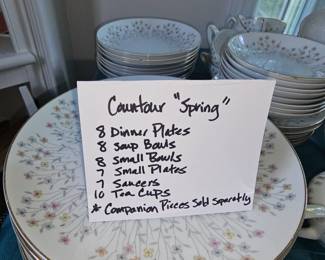 Countour "Spring"
8 Dinner Plates
8 Soup Bowls
8 Small Bowls
7 Small Plates
7 Saucers
10 Tea Cups
* Companion Pieces Sold Separatly